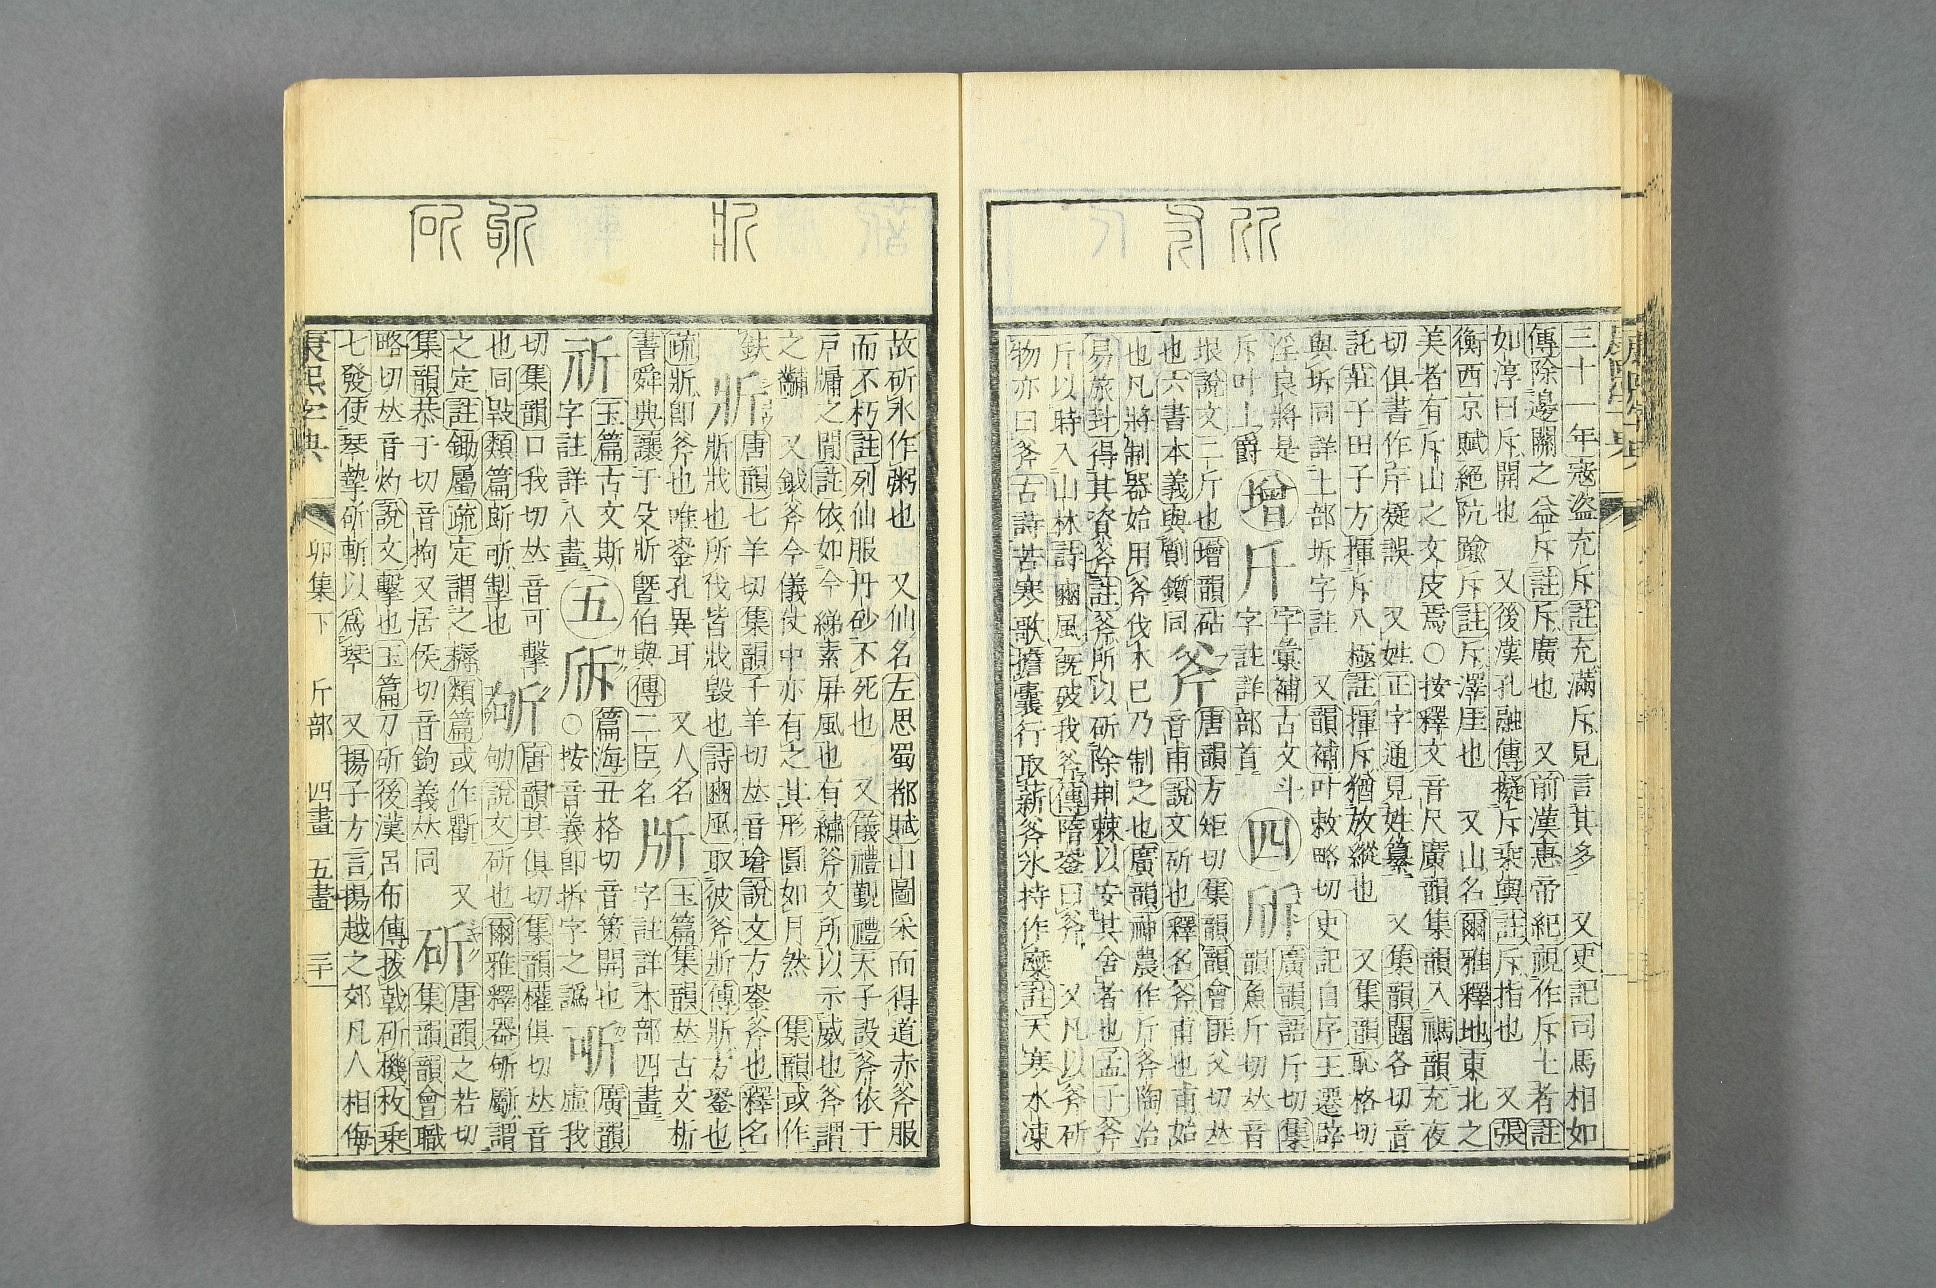 三十一年寇盜充斥註充滿斥見言其多　又史記司馬相如
傳除邊關之益斥註斥廣也　又前漢惠帝紀視作斥土者註
如淳曰斥開也　又後漢孔融傳擬斥乘輿註斥指也　又張
衡西京賦絕阬踰斥註斥澤崖也　又山名爾雅釋地東北之
美者有斥山之文皮焉○按釋文音尺廣韻集韻入禡韻充夜
切俱書作斥疑誤　又姓正字通見姓纂　又集韻闥各切音
託莊子田子方揮斥八極註揮斥猶放縱也　又集韻恥格切
與坼同詳土部坼字註　又韻補叶敕略切史記自序王遷辟
淫良將是
斥叶上爵
增
斤
字彙補古文斗
字註詳部首
四
斦
廣韻語斤切集
韻魚斤切𠀤音
垠說文二斤也增韻砧
斧
唐韻方矩切集韻韻會匪父切𠀤
音甫說文斫也釋名斧甫也甫始
也凡將制器始用斧伐木已乃制之也廣韻神農作斤斧陶冶
也六書本義與劗鑕同
易旅卦得其資斧註斧所以斫除荆棘以安其舍者也孟子斧
斤以時入山林詩豳風旣破我斧傳隋銎曰斧　又凡以斧斫
物亦曰斧古詩苦寒歌擔囊行取薪斧冰持作糜註天寒水凍
故斫冰作粥也　又仙名左思蜀都賦山圖采而得道赤斧服
而不朽註列仙服丹砂不死也　又儀禮覲禮天子設斧依于
戸牖之閒註依如今綈素屏風也有繡斧文所以示威也斧謂
之黼　又鉞斧今儀仗中亦有之其形圓如月然　集韻或作
鈇
斨
唐韻七羊切集韻子羊切𠀤音瑲說文方銎斧也釋名
斨戕也所伐皆戕毀也詩豳風取彼斧斨傳斨方銎也
疏斨卽斧也唯銎孔異耳　又人名
書舜典讓于殳斨曁伯與傳二臣名
㸞
玉篇集韻𠀤古文析
字註詳木部四畫
玉篇古文斯
字註詳八畫
五
篇海丑格切音策開也
○按音義卽拆字之譌
廣韻
虛我
切集韻口我切𠀤音可擊
也同㪃類篇斫斪製也
斪
唐韻其俱切集韻權俱切𠀤音
劬說文斫也爾雅釋器斫斸謂
之定註鋤屬疏定謂之耨類篇或作斸　又
集韻恭于切音拘又居侯切音鉤義𠀤同
斫
唐韻之若切
集韻韻會職
略切𠀤音灼說文擊也玉篇刀斫後漢呂布傳拔戟斫機枚乘
七發使琴摯斫斬以爲琴　又揚子方言揚越之郊凡人相侮
康熙字典
卯集下　斤部　四畫　五畫　三十